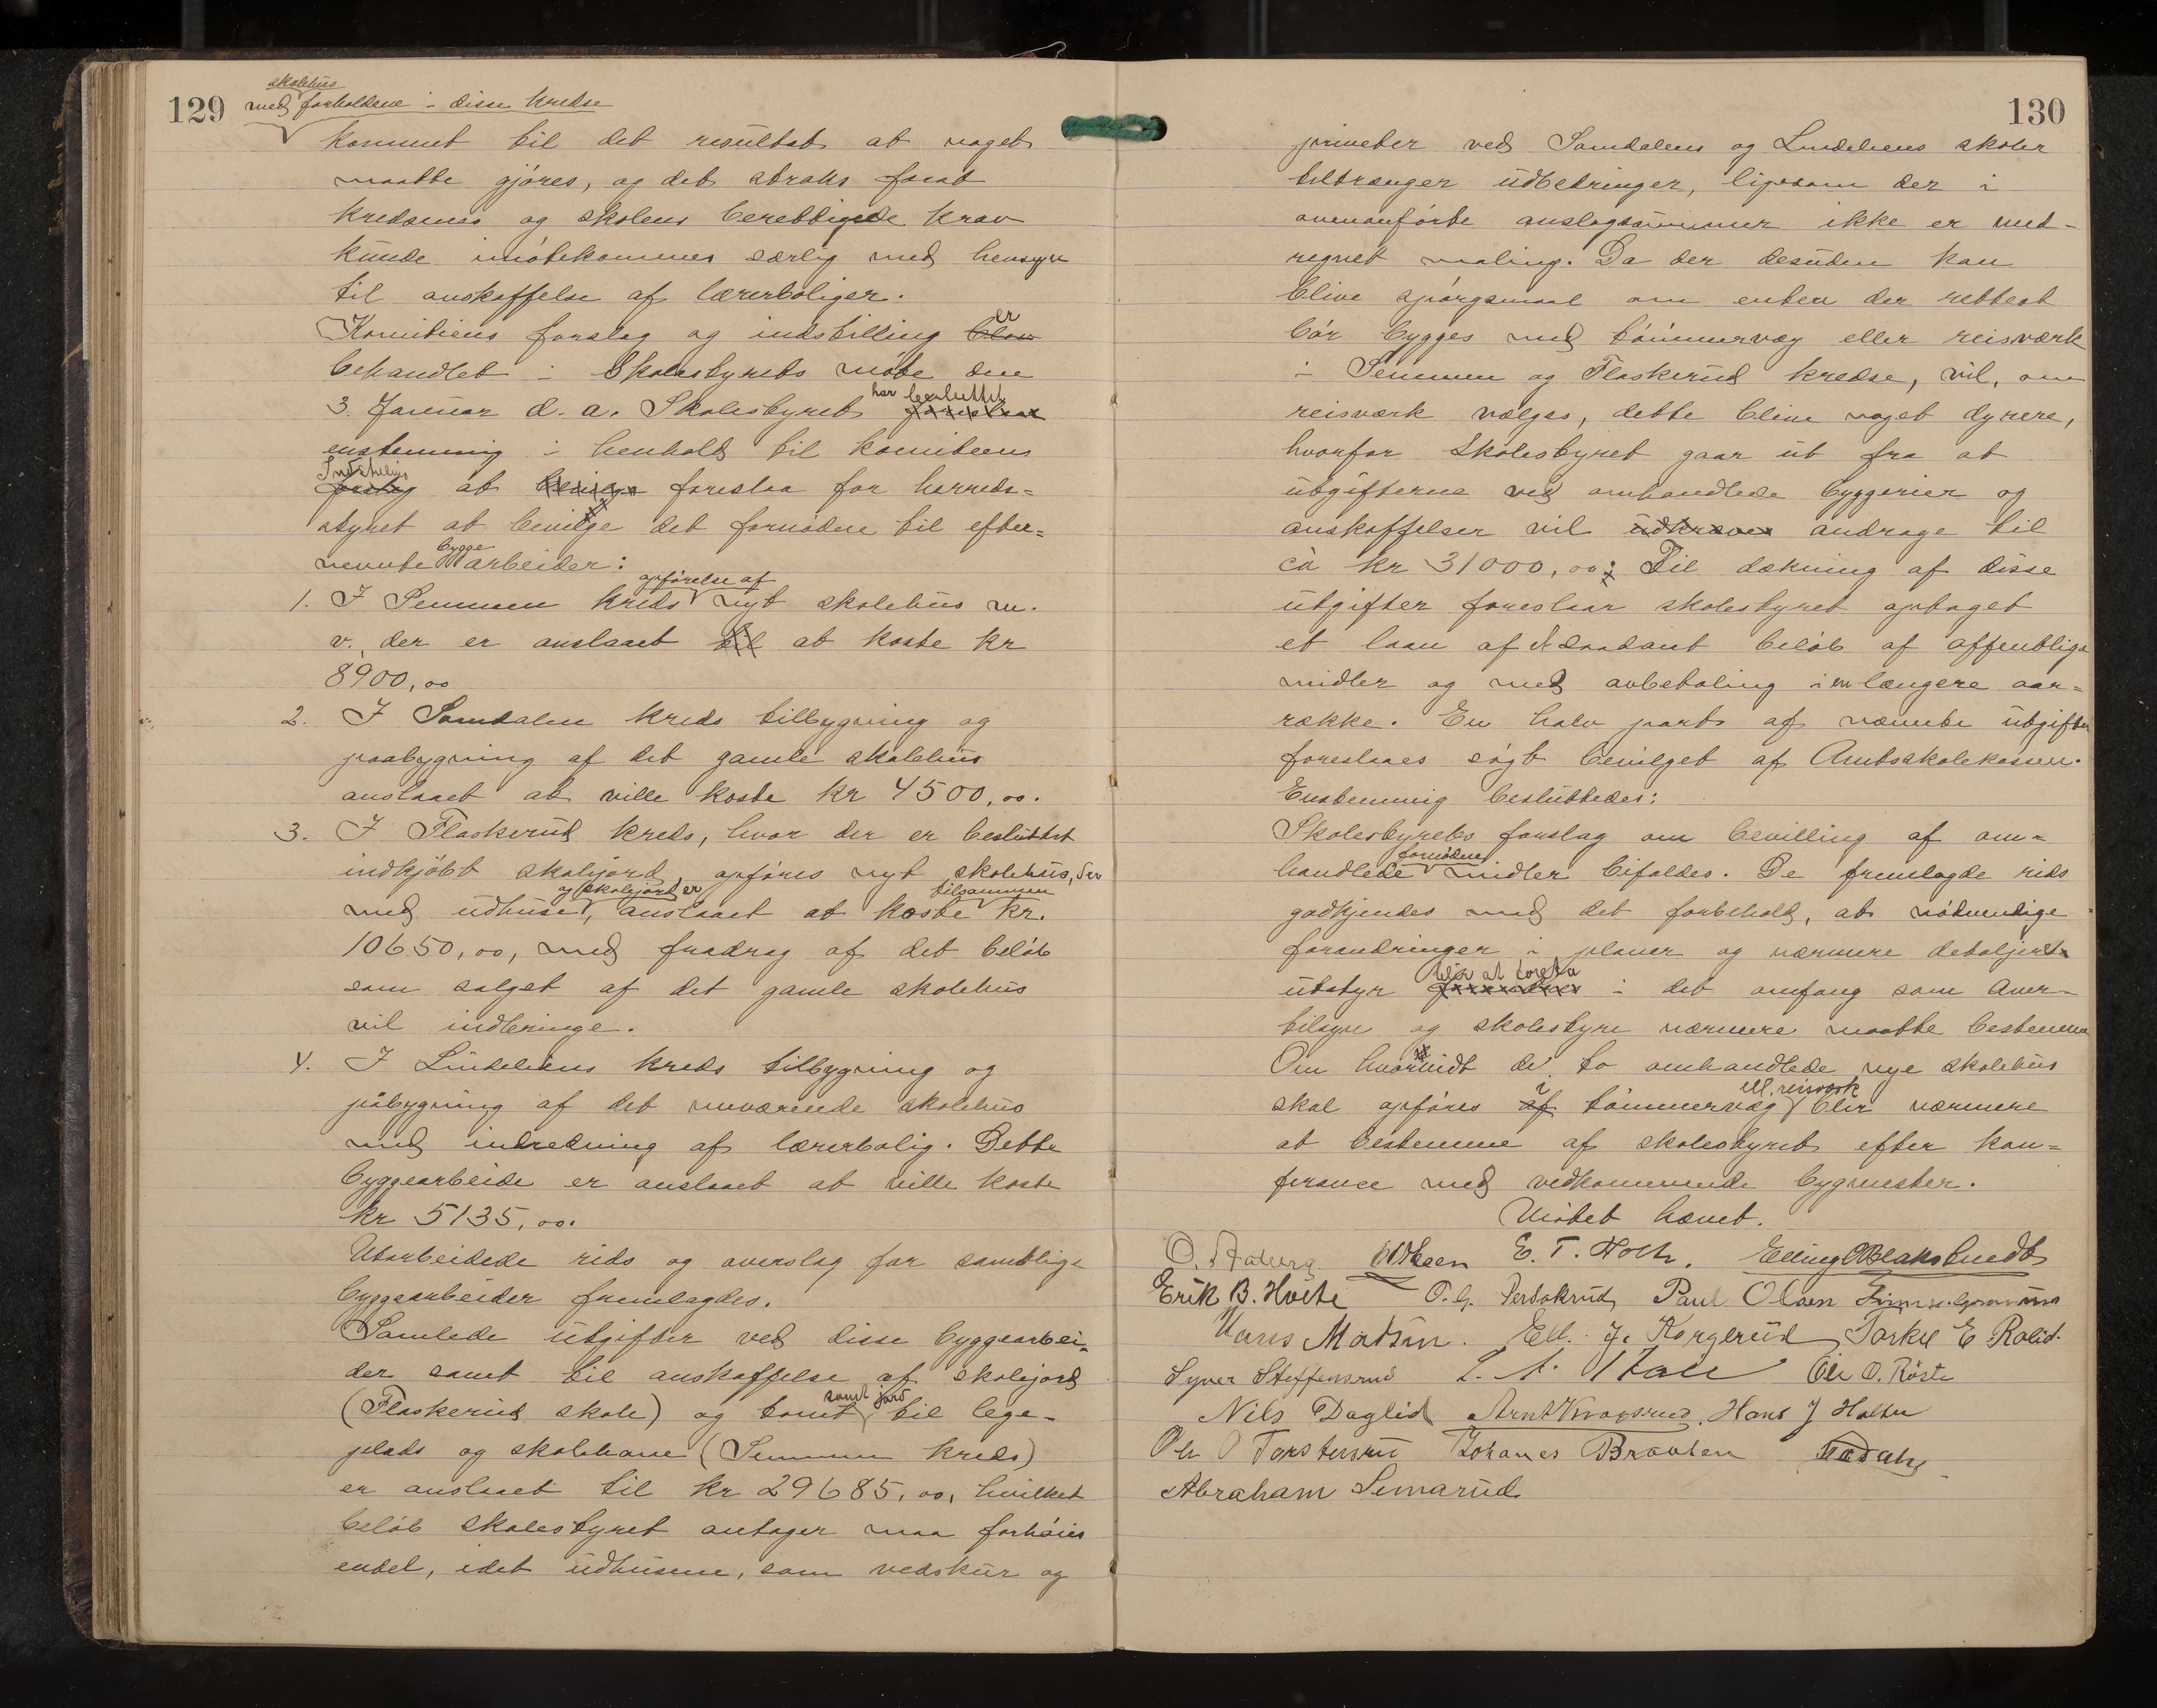 129
skolehus
med forholdene i disse kredse
kommet til det resultat at noget
maatte gjøres, og det straks forat
kredsenes og skolens berettigede krav
kunde imøtekommes særlig med hensyn
til anskaffelse af lærerboliger.
er
Komitéens forslag og indstilling blev
behandlet i Skolestyrets møte den
har besluttet
3. Januar d. a. Skolestyret foreslaar
enstemmig i henhold til komiteens
Indstilling
forslag at bevilge foreslaa for herreds=
styret at bevilge det fornødne til efter=
bygge
nevnte arbeider:
opførelse af
1. I Semmen kreds nyt skolehus m.
v., der er anslaaet til at koste kr
8900,00
2. I Samdalen kreds tilbygning og
paabygning af det gamle skolehus
anslaaet at ville koste kr 4500,00.
3. I Flaskerud kreds, hvor der er besluttet
indkjøbt skolejord, opføres nyt skolehus, der
og skolejord er tilsammen
med udhuse, anslaaet at koste kr.
10650,00, med fradrag af det beløb
som salget af det gamle skolehus
vil indbringe.
4. I Lindeliens kreds tilbygning og
påbygning af det nuværende skolehus
med indredning af lærerbolig. Dette
byggearbeide er anslaaet at ville koste
kr 5135,00.
Utarbeidede rids og overslag for samtlige
byggearbeider fremlagdes.
Samlede utgifter ved disse byggearbei=
der samt til anskaffelse af skolejord
samt jord
(Flaskerud skole) og tomt til lege-
plads og skolehave (Semmen kreds)
er anslaaet til kr 29685,00, hvilket
beløb skolestyret antager maa forhøies
endel, idet udhusene, som vedskur og
130
priveter ved Samdalens og Lindeliens skoler
tiltrænger udbedringer, ligesom der i
ovenanførte anslagssummer ikke er med-
regnet maling. Da der desuden kan
blive spørgsmaal om enten der rettest
bør bygges med tømmervæg eller reisværk
i Semmen og Flaskerud kredse, vil, om
reisværk vælges, dette blive noget dyrere,
hvorfor Skolestyret gaar ut fra at
utgifterne ved omhandlede byggerier og
anskaffelser vil udkræve andrage til
ca kr 31000,00; Til dækning af disse
utgifter foreslaar skolestyret optaget
et laan af et saadant beløb af offentlige
midler og med avbetaling i en længere aar=
række. En halv part af nævnte utgifter
foreslaaes søgt bevilget af Amtsskolekassen.
Enstemmig besluttedes:
Skolestyrets forslag om bevilling af om=
fornødne
handlede midler bifaldes. De fremlagde rids
godkjendes med det forbehold, at nødvendige
forandringer i planer og nærmere detaljerte
blir at foreta
utstyr forandres i det omfang som Amer-
tilsyn og skolestyre nærmere maatte bestemme
Om hvorvidt de to omhandlede nye skolehus
i ell. reisværk
skal opføres af tømmervæg blir nærmere
at bestemme af skolestyret efter kon=
ferance med vedkommende bygmester.
Mødet hævet.
E. T. Holte.
Erik B. Holte Paul Olsen
Hans Madsen. Ell. J. Korgerud Torkel E. Rolid.
Syver Steffensrud Ole O. Röste
Nils Daglid Arnt Knagsrud. Hans J Holte
Ole O Torstensrud Johannes Bråten
Abraham Semarud